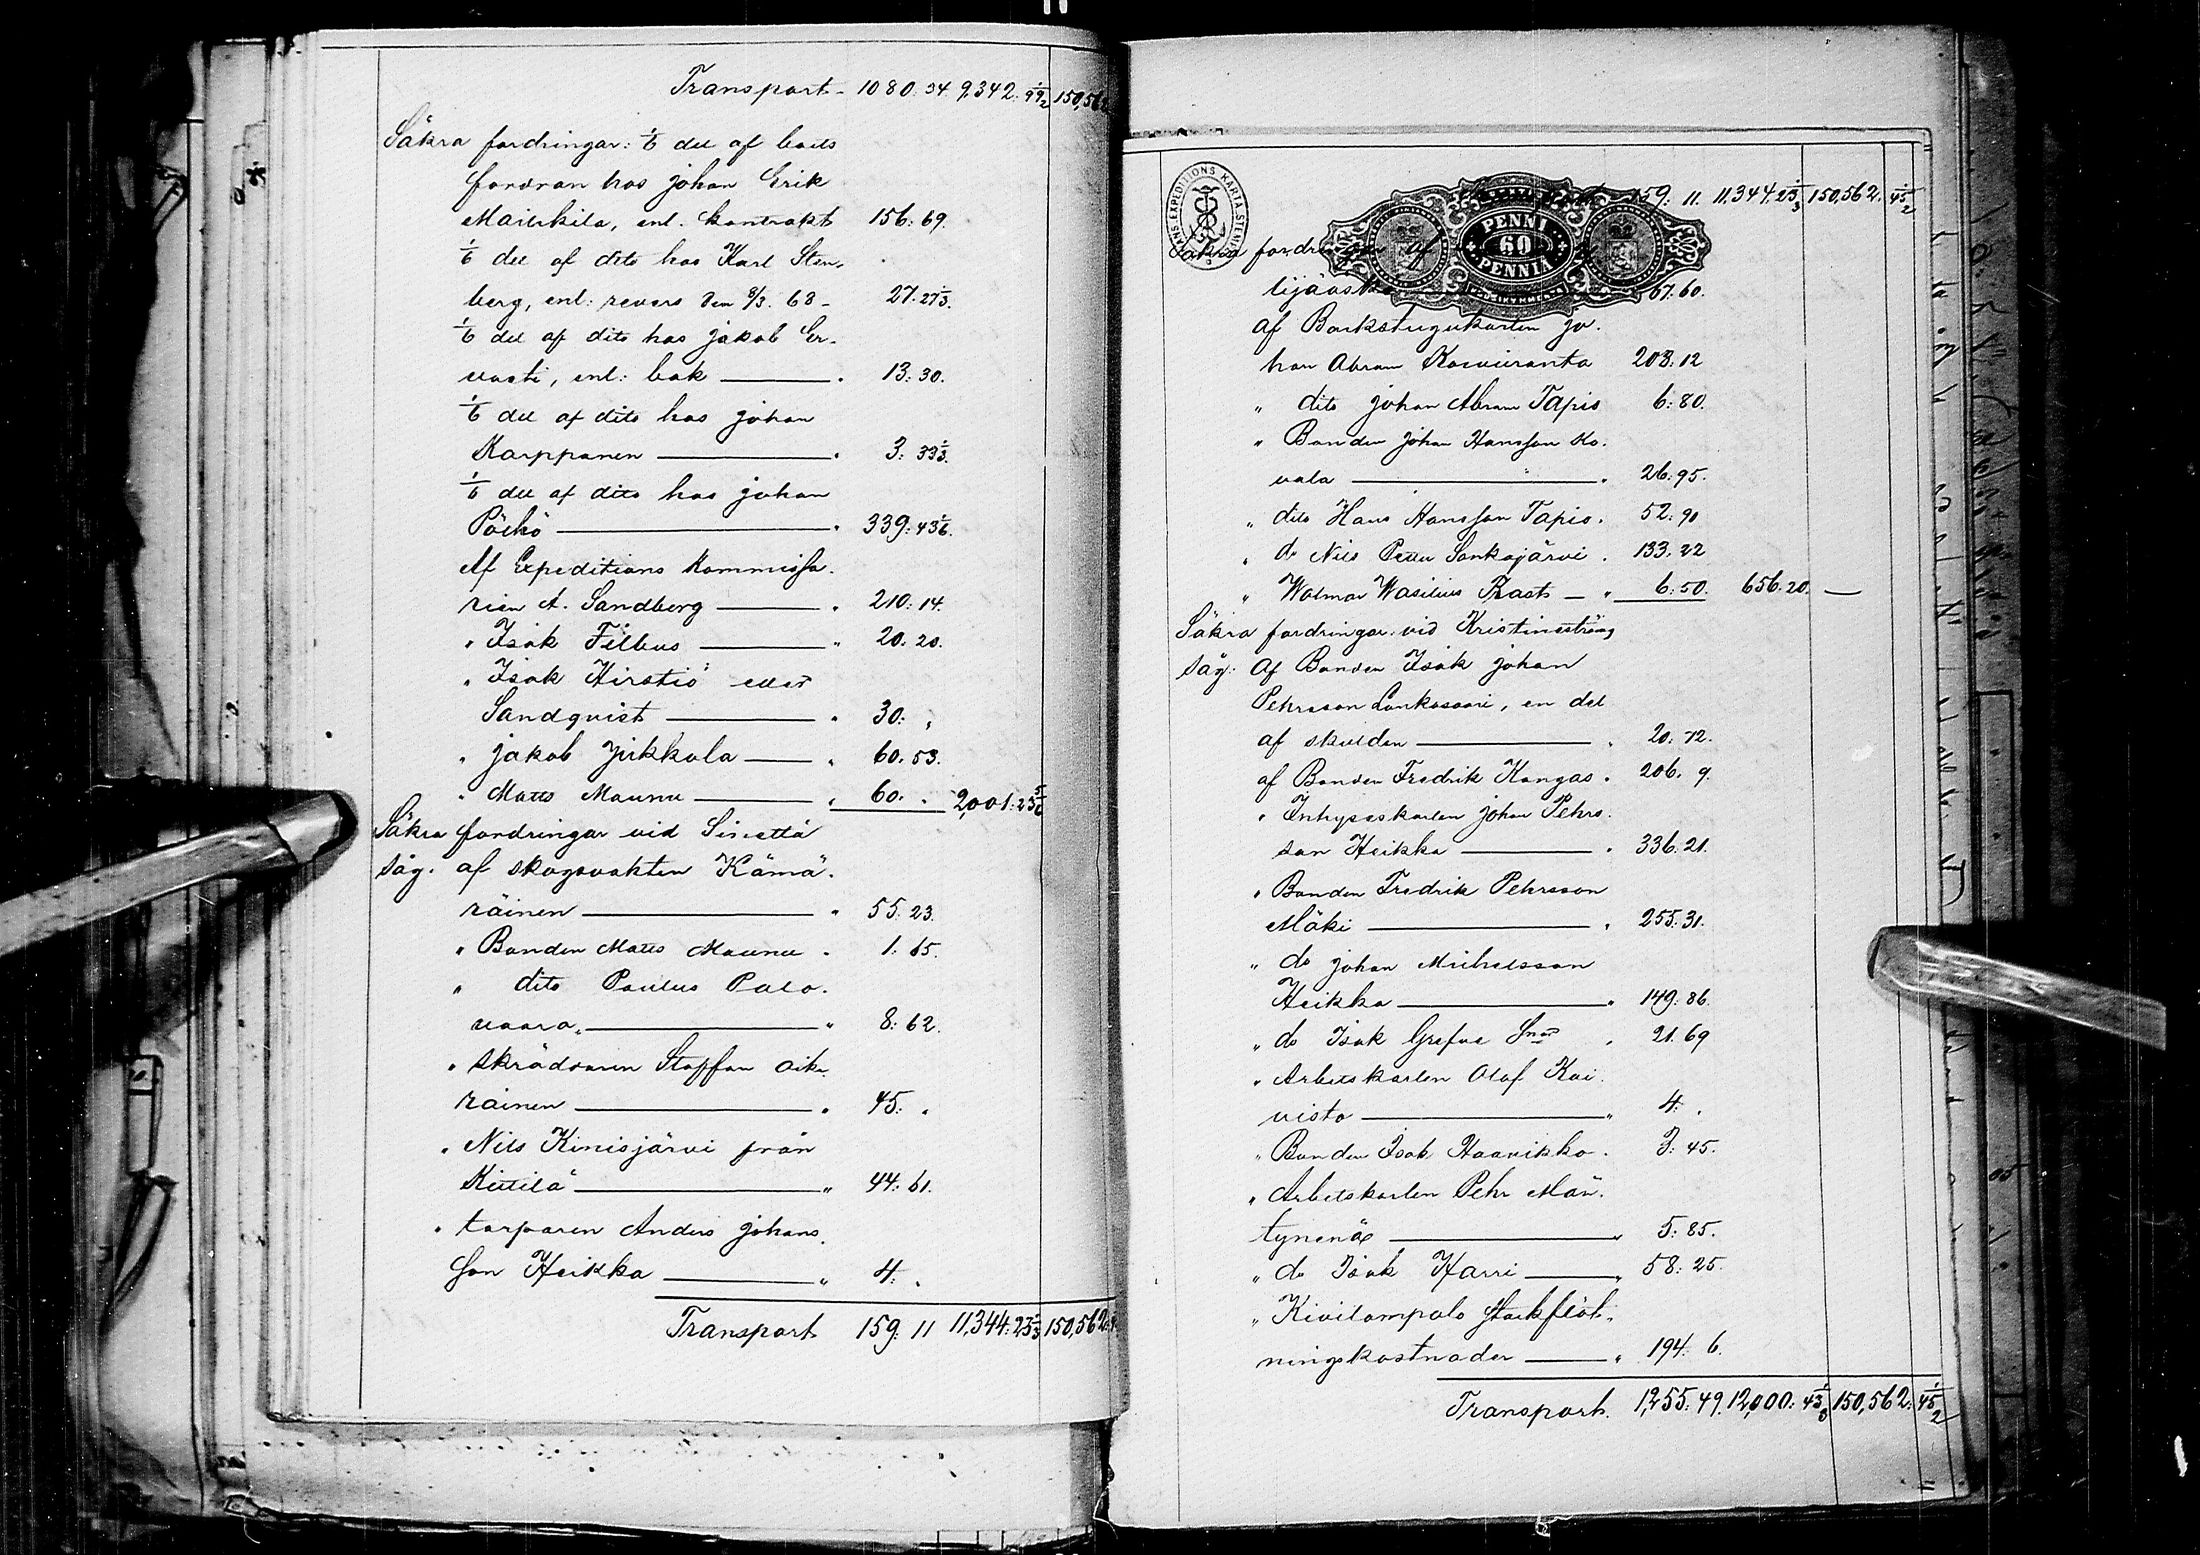 Transport 1080: 34 9,342: 99 1/2 150,562
Säkra fordringar: 1/6 del af boets
fordran hos Johan Erik
enl. kontrakt 156: 69.
1/6 del af dito hos Karl Sten-
berg, enl: revers den 8/3. 68 - 27. 27 1/3.
1/6 del af dito hos Jakob Er-
vasti, enl: bok " 13: 30.
1/6 del af dito hos Johan
Karppanen " 3: 33 1/3.
1/6 del af dito hos Johan
" 339: 43 1/6.
Af Expeditions Kommissa-
rien A. Sandberg " 210: 14.
" Isak Filbus " 20: 20.
" Isak Hirstiö eller
Sandqvist " 30: "
" Jakob Jirkkola " 60. 53.
" Matts Maunu " 60: " 2,001: 23 5/6
Säkra fordringar vid Sinettä
såg. af skogsvakten Kämä-
räinen " 55: 23.
" Bonden Matts Maunu " 1: 65.
" dito Paulus Palo-
vaara " 8: 62.
" skräddaren Staffan Oika-
rainen " 45: "
" Nils Kinisjärvi från
Kittilä " 44: 61.
" torparen Anders Johans-
son Heikka " 4: "
Transport 159: 11 11,344: 23 1/3 150,562
TRANS. EXPEDITIONS KARTA. STEMPEL
PENNI
60
PENNIA
159: 11 11,344: 23 1/3 150,562: 45 1/2
Säkra fordringar af
67: 60.
af Backstugukarlen Jo-
han Abram Koivuranta 208: 12
" dito Johan Abram Tapio 6: 80.
" Bonden Johan Hansson Ko-
vala " 26: 95.
" dito Hans Hansson Tapio " 52: 90
" do Nils Petter Sonkajärvi " 133: 22
" Wolmar Wasilius Rast " 6: 50. 656: 20.
Säkra fordringar vid Kristineströms
såg: Af Bonden Isak Johan
Pehrsson Lankosaari, en del
af skulden " 20: 72.
af Bonden Fredrik Kangas " 206. 9.
" Inhyseskarlen Johan Pehrs-
son Heikka " 336. 21.
" Bonden Fredrik Pehrsson
Mäki " 255: 31.
" do Johan Michelsson
Heikka " 149: 86.
" do Isak Grefve " 21. 69
" Arbetskarlen Olof Koi-
visto " 4: "
" Bonden Isak Haavikko " 3: 45.
" Arbetskarlen Pehr Män-
tynenä " 5: 85.
" do Isak Harri " 58: 25.
" Kivilompolo stockflöt-
ningskostnader " 194: 6.
Transport. 1,255: 49. 12,000: 43 1/3 150,562: 45 1/2